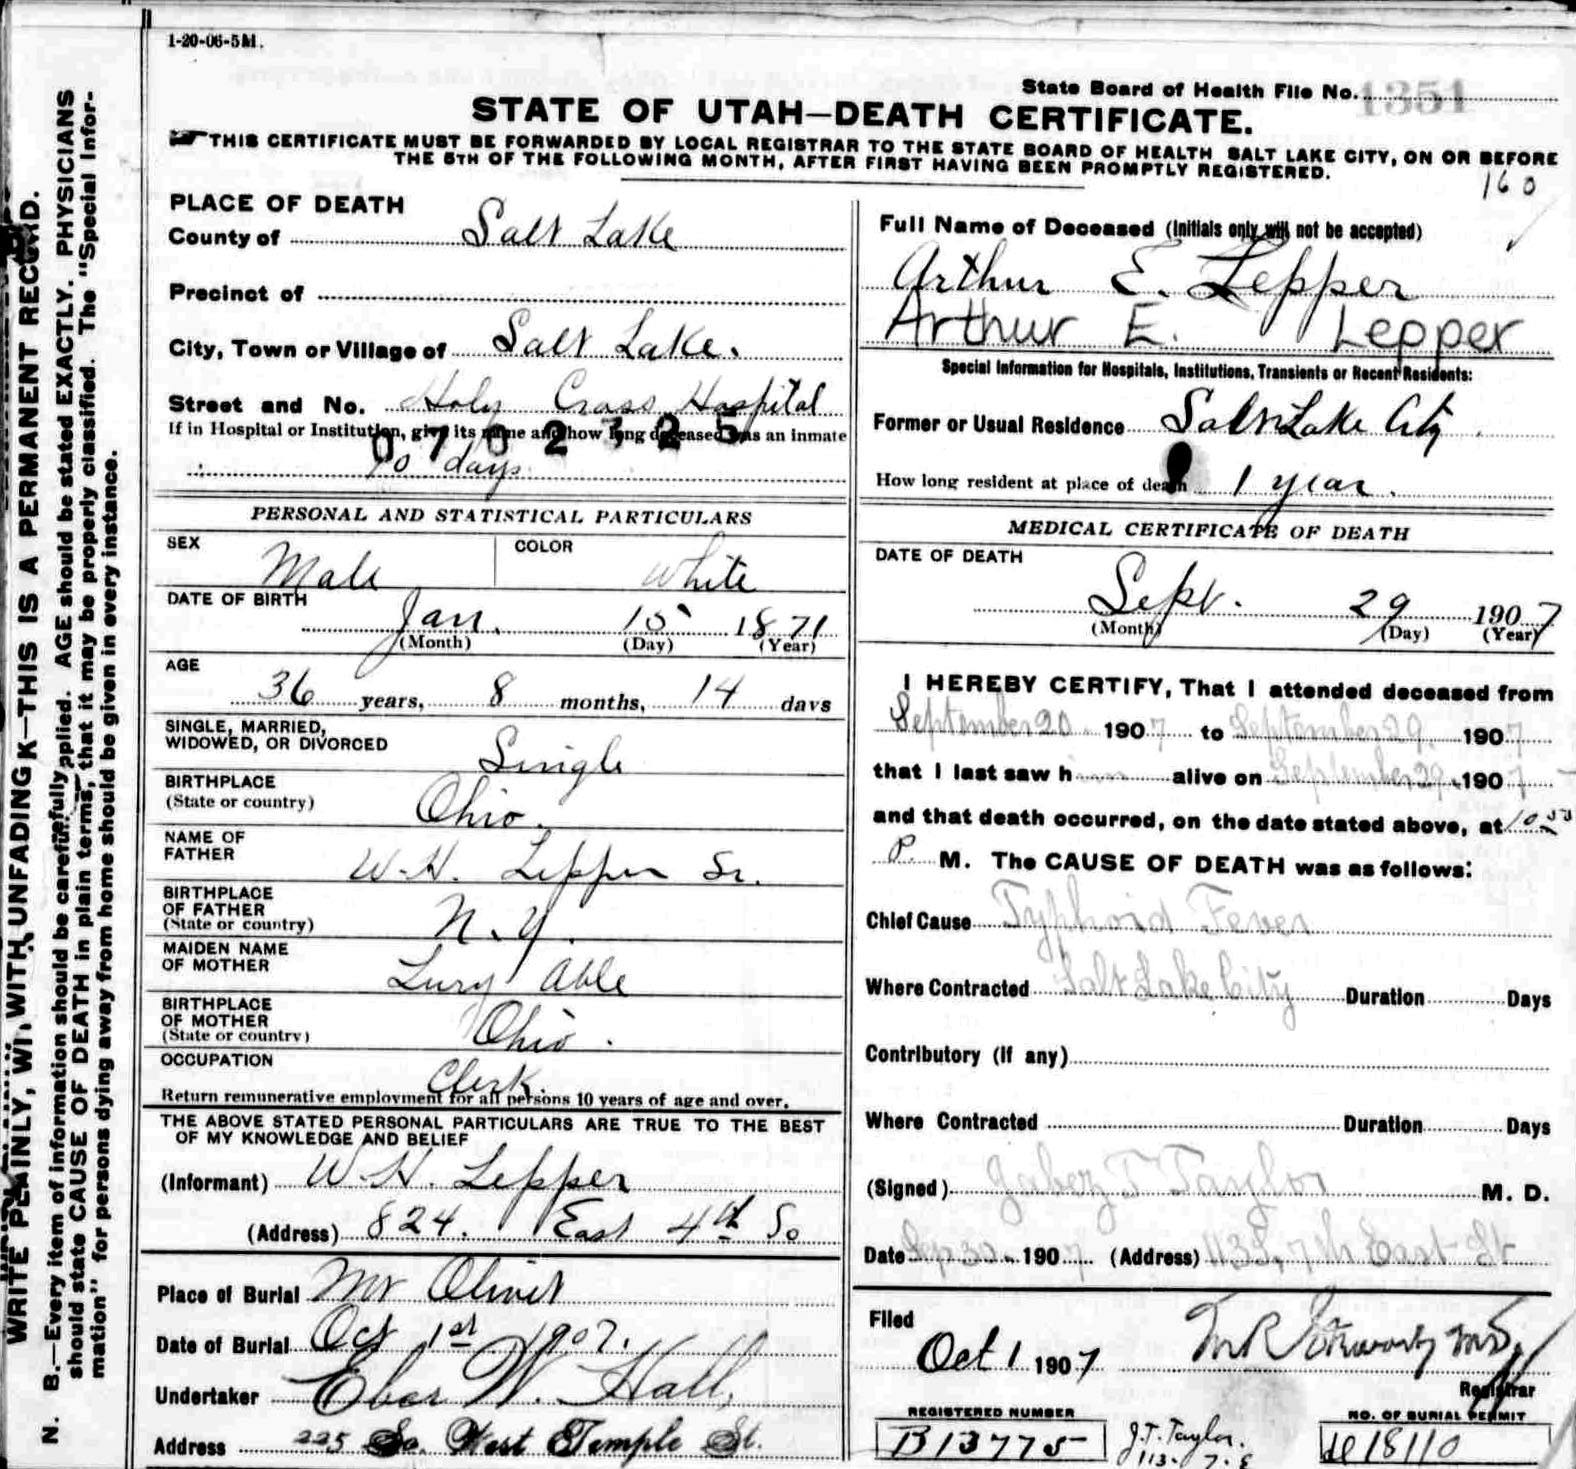 1-20-06-5M.
State Board of Health File No. 1351
STATE OF UTAH—DEATH CERTIFICATE.
THIS CERTIFICATE MUST BE FORWARDED BY LOCAL REGISTRAR TO THE STATE BOARD OF HEALTH SALT LAKE CITY, ON OR BEFORE
THE 5TH OF THE FOLLOWING MONTH, AFTER FIRST HAVING BEEN PROMPTLY REGISTERED.
160
WRITE PLAINLY, WITH UNFADING INK—THIS IS A PERMANENT RECORD.
N. B.—Every item of information should be carefully supplied. AGE should be stated EXACTLY. PHYSICIANS
should state CAUSE OF DEATH in plain terms, that it may be properly classified. The "Special Infor-
mation" for persons dying away from home should be given in every instance.
PLACE OF DEATH
County of Salt Lake
Precinct of
City, Town or Village of Salt Lake.
Street and No. Holy Cross Hospital
If in Hospital or Institution, give its name and how long deceased was an inmate
0702325
10 days
PERSONAL AND STATISTICAL PARTICULARS
SEX Male COLOR White
DATE OF BIRTH
Jan. 15 1871
(Month) (Day) (Year)
AGE
36 years, 8 months, 14 days
SINGLE, MARRIED,
WIDOWED, OR DIVORCED Single
BIRTHPLACE
(State or country) Ohio.
NAME OF
FATHER W. H. Lepper Sr.
BIRTHPLACE
OF FATHER
(State or country) N. Y.
MAIDEN NAME
OF MOTHER Lucy Able
BIRTHPLACE
OF MOTHER
(State or country) Ohio.
OCCUPATION
Clerk.
Return remunerative employment for all persons 10 years of age and over.
THE ABOVE STATED PERSONAL PARTICULARS ARE TRUE TO THE BEST
OF MY KNOWLEDGE AND BELIEF
(Informant) W. H. Lepper
(Address) 824. East 4th So
Place of Burial Mt Olivet
Date of Burial Oct 1st 1907.
Undertaker Eber W. Hall,
Address 225 So. West Temple St.
Full Name of Deceased (Initials only will not be accepted)
Arthur E. Lepper
Arthur E. Lepper
Special Information for Hospitals, Institutions, Transients or Recent Residents:
Former or Usual Residence Salt Lake City.
How long resident at place of death 1 year.
MEDICAL CERTIFICATE OF DEATH
DATE OF DEATH
Sept. 29 1907
(Month) (Day) (Year)
I HEREBY CERTIFY, That I attended deceased from
September 20 1907 to September 29. 1907
that I last saw him alive on September 29, 1907
and that death occurred, on the date stated above, at 10
P. M. The CAUSE OF DEATH was as follows:
Chief Cause Typhoid Fever
Where Contracted Salt Lake City Duration Days
Contributory (if any)
Where Contracted Duration Days
(Signed) Jabez T Taylor M. D.
Date Sep 30. 1907 (Address) 113 S. 7th East St
Filed
Oct 1 1907
Registrar
REGISTERED NUMBER
B13775
J.T. Taylor.
113. 7. E
NO. OF BURIAL PERMIT
18110